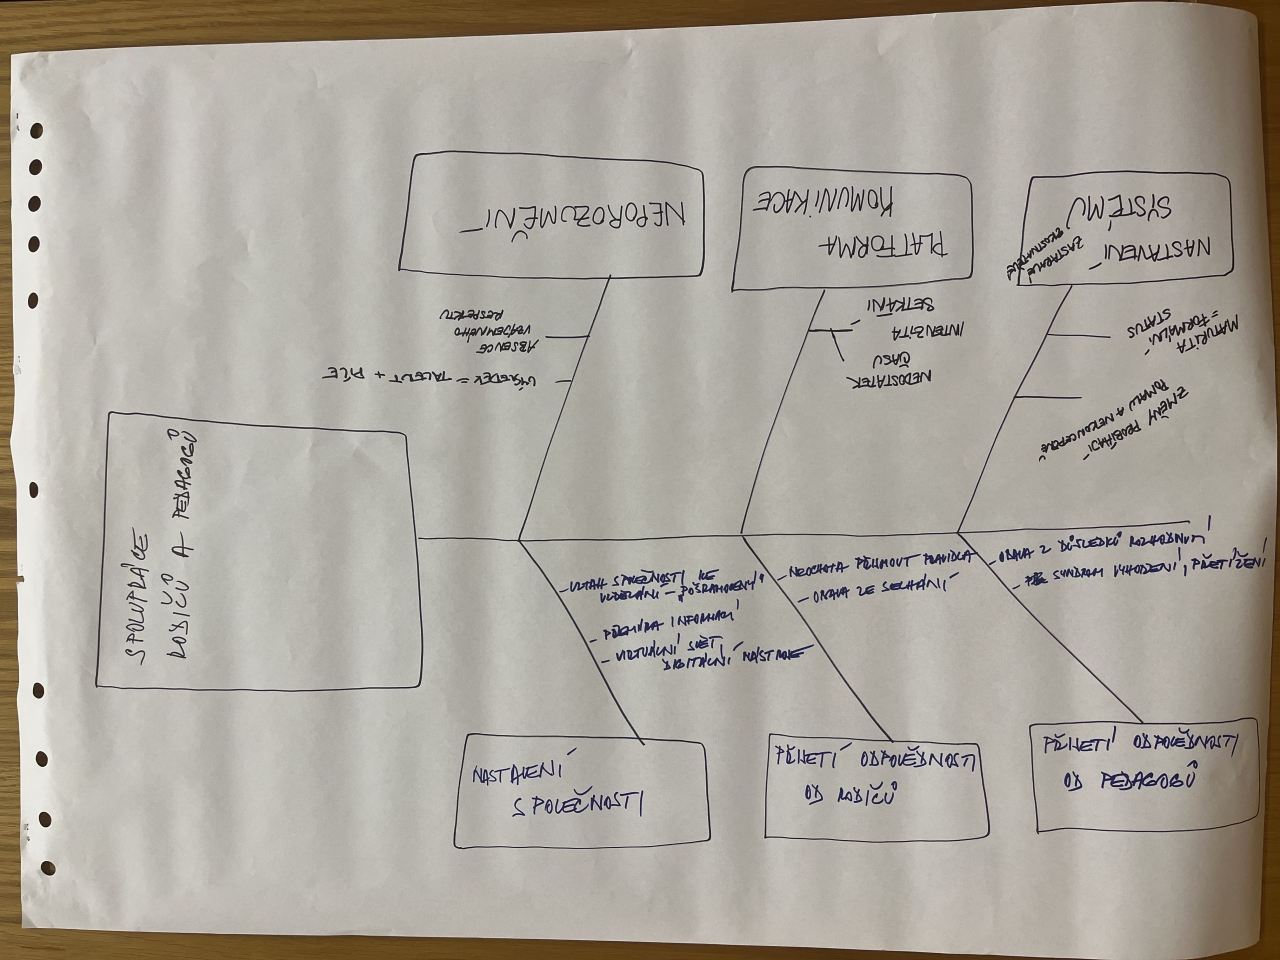 SPOLUPRÁCE
RODIČŮ A PEDAGOGŮ
NEPOROZUMĚNÍ
ABSENCE
VZÁJEMNÉHO
RESPEKTU
VÝSLEDEK = TALENT + PÍLE
PLATFORMA
KOMUNIKACE
INTENZITA
SETKÁNÍ
NEDOSTATEK
ČASU
NASTAVENÍ
SYSTÉMU
ZASTARALÉ
MATURITA
= FORMÁLNÍ
STATUS
ZMĚNY PROBÍHAJÍ
POMALU A NEKONCEPČNĚ
- VZTAH SPOLEČNOSTI KE
VZDĚLÁNÍ - "POŠRAMOCENÝ"
- PŘEMÍRA INFORMACÍ
- VIRTUÁLNÍ SVĚT,
DIGITÁLNÍ NÁSTROJE
- NEOCHOTA PŘIJMOUT PRAVIDLA
- OBAVA ZE SELHÁNÍ
- OBAVA Z DŮSLEDKŮ ROZHODNUTÍ
- SYNDROM VYHOŘENÍ, PŘETÍŽENÍ
NASTAVENÍ
SPOLEČNOSTI
PŘIJETÍ ODPOVĚDNOSTI
OD RODIČŮ
PŘIJETÍ ODPOVĚDNOSTI
OD PEDAGOGŮ